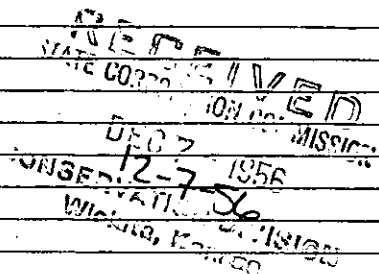 RECEIVED
STATE CORPORATION COMMISSION
DEC 7 1956
12-7-56
CONSERVATION DIVISION
Wichita, Kansas